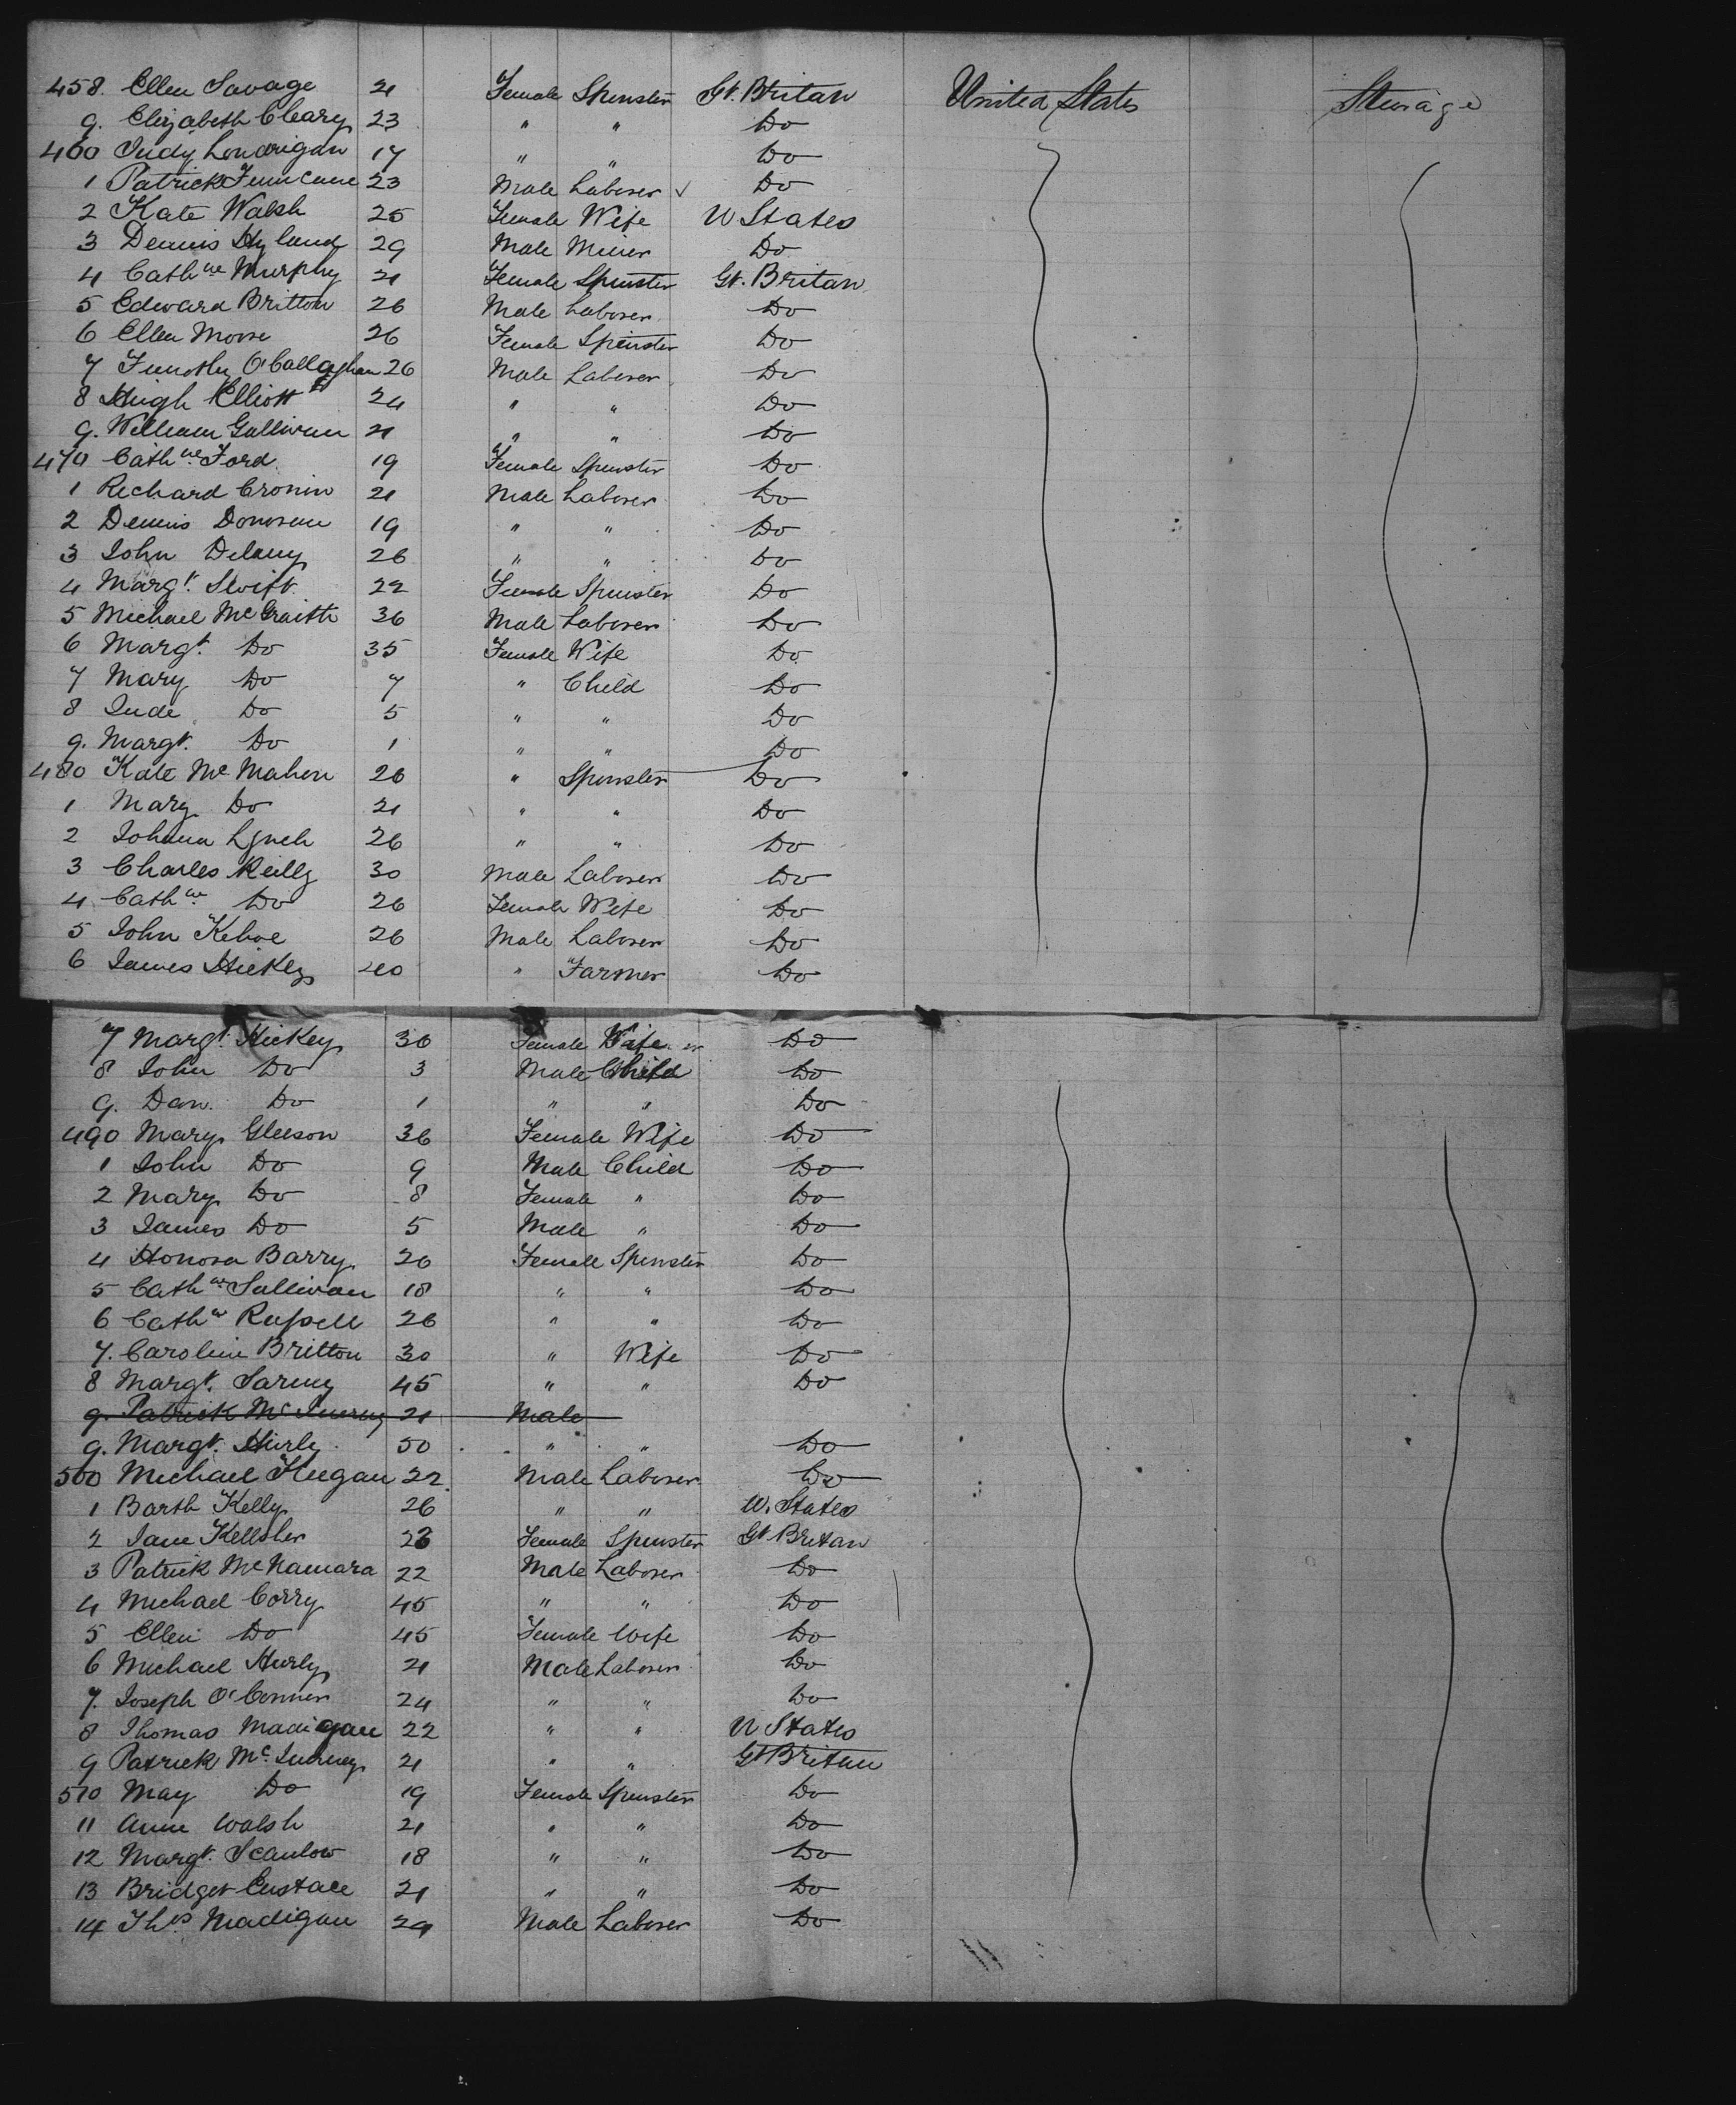 458. Ellen Savage 21 Female Spinster Gt. Britan United States Sterage
9. Elizabeth Cleary 23 " " Do
460 Judy Londrigan 17 " " Do
1 Patrick Finucane 23 Male Laborer ✓ Do
2 Kate Walsh 25 Female Wife U States
3 Dennis Hyland 29 Male Miner Do
4 Cathne Murphy 21 Female Spinster Gt. Britan
5 Edward Britton 26 Male Laborer Do
6 Ellen Moore 26 Female Spinster Do
7 Timothy O'Callaghan 26 Male Laborer Do
8 Hugh Elliott 24 " " Do
9. William Gallivan 21 " " Do
470 Cathne Ford 19 Female Spinster Do
1 Richard Cronin 21 Male Laborer Do
2 Dennis Donovan 19 " " Do
3 John Delany 26 " " Do
4 Margt. Swift 22 Female Spinster Do
5 Michael McGraith 36 Male Laborer Do
6 Margt. Do 35 Female Wife Do
7 Mary Do 7 " Child Do
8 Jude Do 5 " " Do
9. Margt. Do 1 " " Do
480 Kate McMahon 26 " Spinster Do
1 Mary Do 21 " " Do
2 Johana Lynch 26 " " Do
3 Charles Reilly 30 Male Laborer Do
4 Cathne Do 26 Female Wife Do
5 John Kehoe 26 Male Laborer Do
6 James Hickey 40 " Farmer Do
7 Margt. Hickey 36 Female Wife Do
8 John Do 3 Male Child Do
9. Dan. Do 1 " " Do
490 Mary Gleeson 36 Female Wife Do
1 John Do 9 Male Child Do
2 Mary Do 8 Female " Do
3 James Do 5 Male " Do
4 Honora Barry 20 Female Spinster Do
5 Cathne Sullivan 18 " " Do
6 Cathne Russell 26 " " Do
7. Caroline Britton 30 " Wife Do
8 Margt. 45 " " Do
9. Patrick McInerny 21 Male
9. Margt. Hurly 50 " " Do
500 Michael Keegan 22 Male Laborer Do
1 Barth Kelly 26 " " U. States
2 Jane Kelleher 23 Female Spinster Gt Britan
3 Patrick McNamara 22 Male Laborer Do
4 Michael Corry 45 " " Do
5 Ellen Do 45 Female Wife Do
6 Michael Hurly 21 Male Laborer Do
7. Joseph O'Connor 24 " " Do
8 Thomas Madigan 22 " " U States
9 Patrick McInerney 21 " " Gt Britan
510 May Do 19 Female Spinster Do
11 Anne Walsh 21 " " Do
12 Margt. Scanlow 18 " " Do
13 Bridget Eustace 21 " " Do
14 Thos Madigan 24 Male Laborer Do